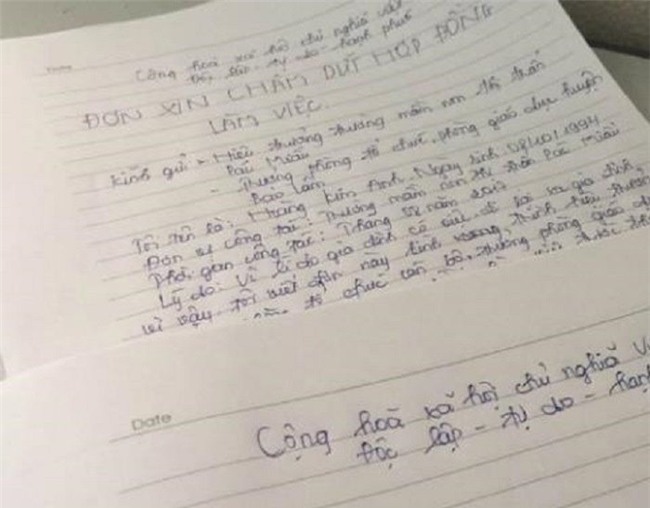 Date
Cộng hoà xã hội chủ nghĩa việt
Độc lập - tự do - hạnh phúc
ĐƠN XIN CHẤM DỨT HỢP ĐỒNG
LÀM VIỆC.
Kính gửi - Hiệu trưởng trường mầm non thị trấn
Pác Miầu
- Trưởng phòng tổ chức, phòng giáo dục huyện
Bảo Lâm
Tôi tên là: Hoàng Kim Anh, Ngày sinh 08/10/1994
Đơn vị công tác: Trường mầm non thị trấn Pác Miầu
Thời gian công tác: Tháng 12 năm 2017
Lý do: Vì lí do gia đình có việc đi lại xa gia đình
vì vậy tôi viết đơn này kính mong, trình hiệu trưởng
tổ chức cán bộ, trưởng phòng giáo
Date
Cộng hoà xã hội chủ nghĩa Vi
Độc lập - tự do - hạnh